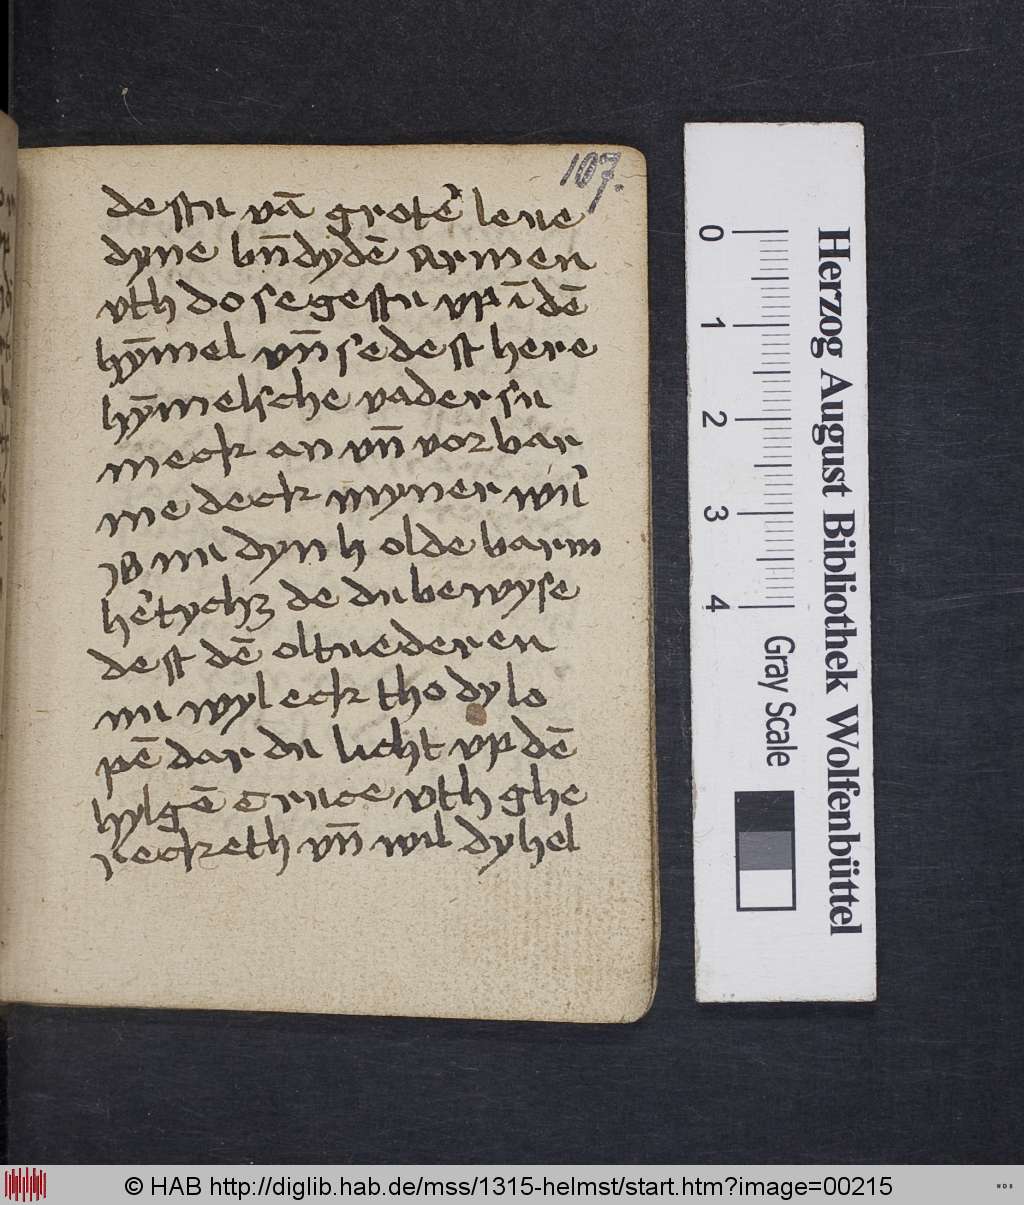 107.
destu vā grote᷑ leue
dyne bn̄dydē armen
vth do segestu vp ī dē
hȳmel vn̄ sedest here
hȳmelsche vader su
meck an vn̄ vorbar
me deck myner wil᷑
ys nu dyn holde barm
he᷑tychȝ de du bewyse
dest dē oltuederen
nu wyl eck tho dy lo
pē dar du licht vp dē
hylgē cruce vth ghe
reeketh vn̄ wil dy hel
0 1 2 3 4
Gray Scale
Herzog August Bibliothek Wolfenbüttel
© HAB http://diglib.hab.de/mss/1315-helmst/start.htm?image=00215